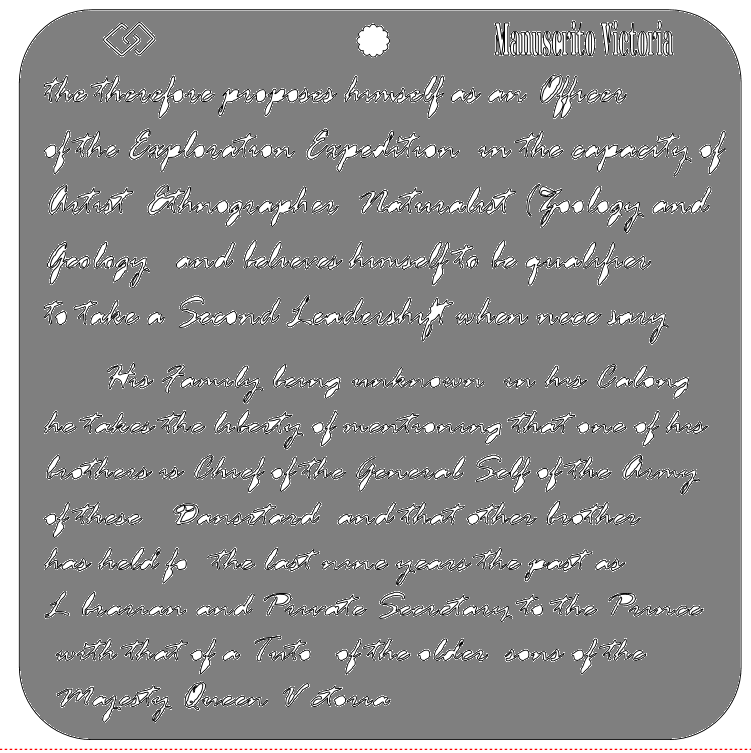 Manuscrito Victoria
the therefore proposes himself as an Officer
of the Exploration Expedition in the capacity of
Artist Ethnographer Naturalist (Zoology and
Geology and believes himself to be qualifier
to take a Second Leadershift when nece sary
His Family being unknown in his Calong
he takes the liberty of mentioning that one of his
brothers is Chief of the General Self of the Army
of these Dansrtard and that other brother
has held fo the last nine years the past as
L brarian and Private Secretary to the Prince
with that of a Tuto of the older sons of the
Majesty Queen V ctoria